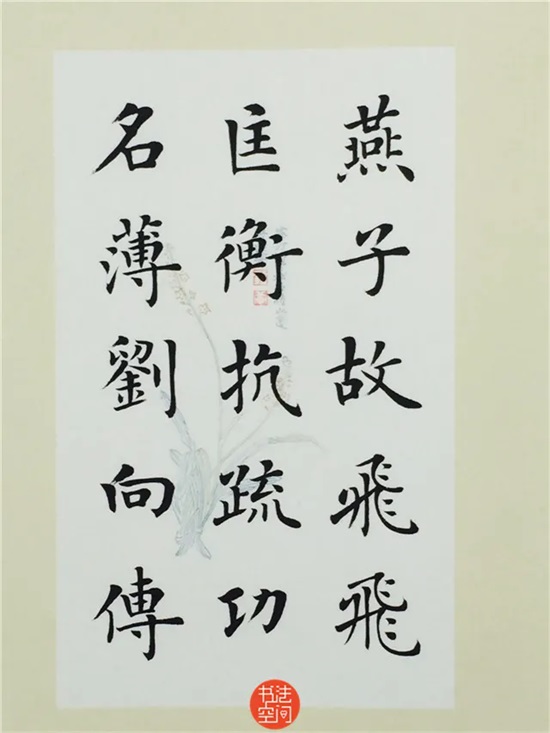 燕子故飛飛
匡衡抗疏功
名薄劉向傳
书法
空间